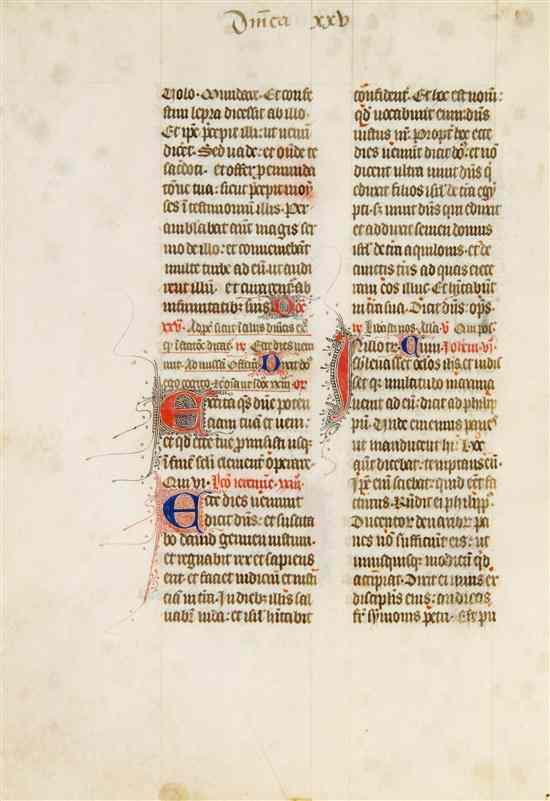 Dm̄ca xxv
Volo. Mundare. Et confe
stim lepra discessit ab illo.
Et ip̄e p̄cepit illi: ut nemini
dicēt. Sed vade: et oſtide te
sacerdoti. et offer p̄ emunda
tōne tua: sicut p̄cepit moy
ses ī testimoniū illis. Per
ambulabat autē magis ser
mo de illo: et conueniebāt
multe turbe ad eū. ut audi
rent illū. et curarent̄ ab
infirmitatib: suis. Dōca
xxv. Ad
Dicit dōs
Excita q̄s dn̄e poten
ciam tuā et ueni:
et q̄d eccē tue promisisti usq̄
ī finē scli clementer operare.
Qui vi. Lēo ieremie. xxiii.
Ecce dies ueniunt
dicit dn̄s: et suscita
bo dauid germen iustum.
et regnabit rex et sapiens
erit. et faciet iudicium et iusti
ciam in t̄ra. In dieb: illis sal
uabit̄ iuda: et isrl̄ hitabit
confident̄. Et hoc est nom̄:
qd̄ uocabunt eum: dn̄s
iustus nr̄. Propt̄ hoc ecce
dies ueniūt dicit dōs. et nō
dicent ultra uiuit dn̄s q̄
eduxit filios isrl̄ de t̄ra egy
pti. s; uiuit dn̄s qui eduxit
et adduxit semen domus
isrl̄ de t̄ra aquilonis. et de
cunctis t̄ris ad quas eiece
ram eos illuc. Et hitabūt
in t̄ra sua. Dicit dn̄s: ops.
Liberasti nos. Alla. v. Qui pos
Cum. Ioh̄em. vi
subleuasset oclos ihs̄. et uidis
set q: multitudo maxima
uenit ad eū: dicit ad philip
pū. Unde ememus panes
ut manducent hi. Hoc
autē dicebat: temptans eū.
Ip̄e eni sciebat: quid eēt fa
cturus. Rn̄dit ei philipp̄.
Ducentor̄ denarior̄ pa
nes nō sufficiūt eis: ut
unusquisq: modicū qd
accipiat. Dixit ei unus ex
discip̄lis eius: andreas
fr̄ symonis petri. Est pu